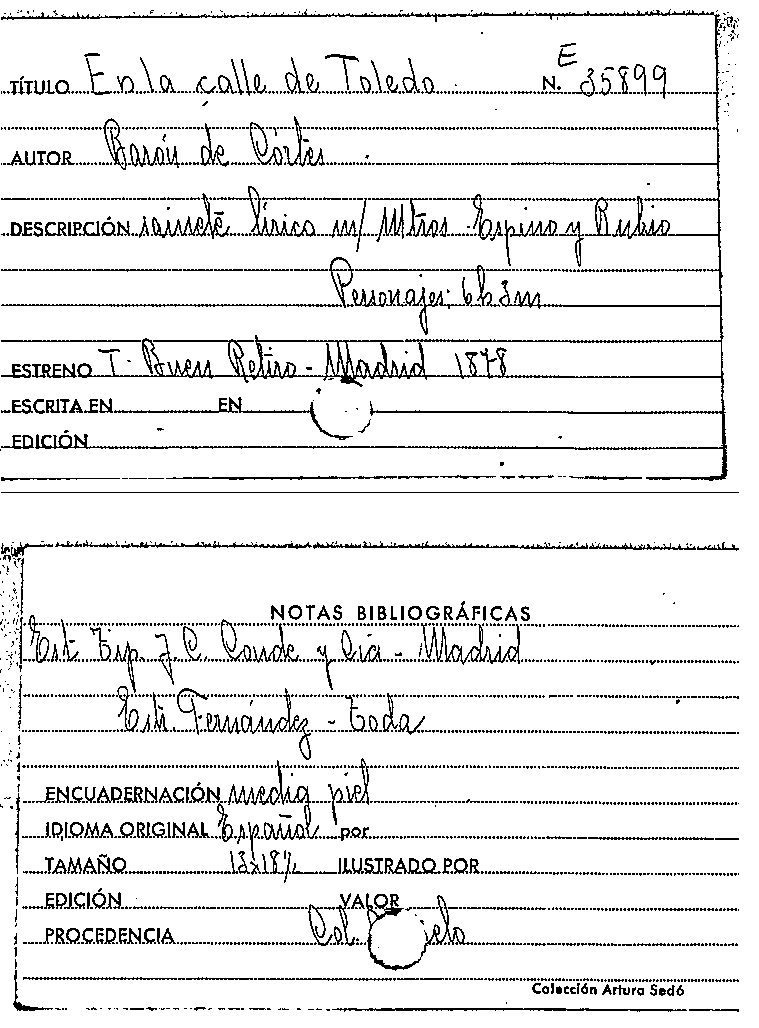 TÍTULO En la calle de Toledo E N. 35899
AUTOR Barón de Córtes
DESCRIPCIÓN sainete lírico m/ Mtros Espino y Rubio
Personajes: 6h 3m
ESTRENO T. Buen Retiro - Madrid 1878
ESCRITA EN EN
EDICIÓN
NOTAS BIBLIOGRÁFICAS
Est. Tip. J. C. Conde y Cia - Madrid
Edit. Fernández - Toda
ENCUADERNACIÓN media piel
IDIOMA ORIGINAL Español por
TAMAÑO 13x18 ILUSTRADO POR
EDICIÓN VALOR
PROCEDENCIA Col.
Colección Arturo Sedó